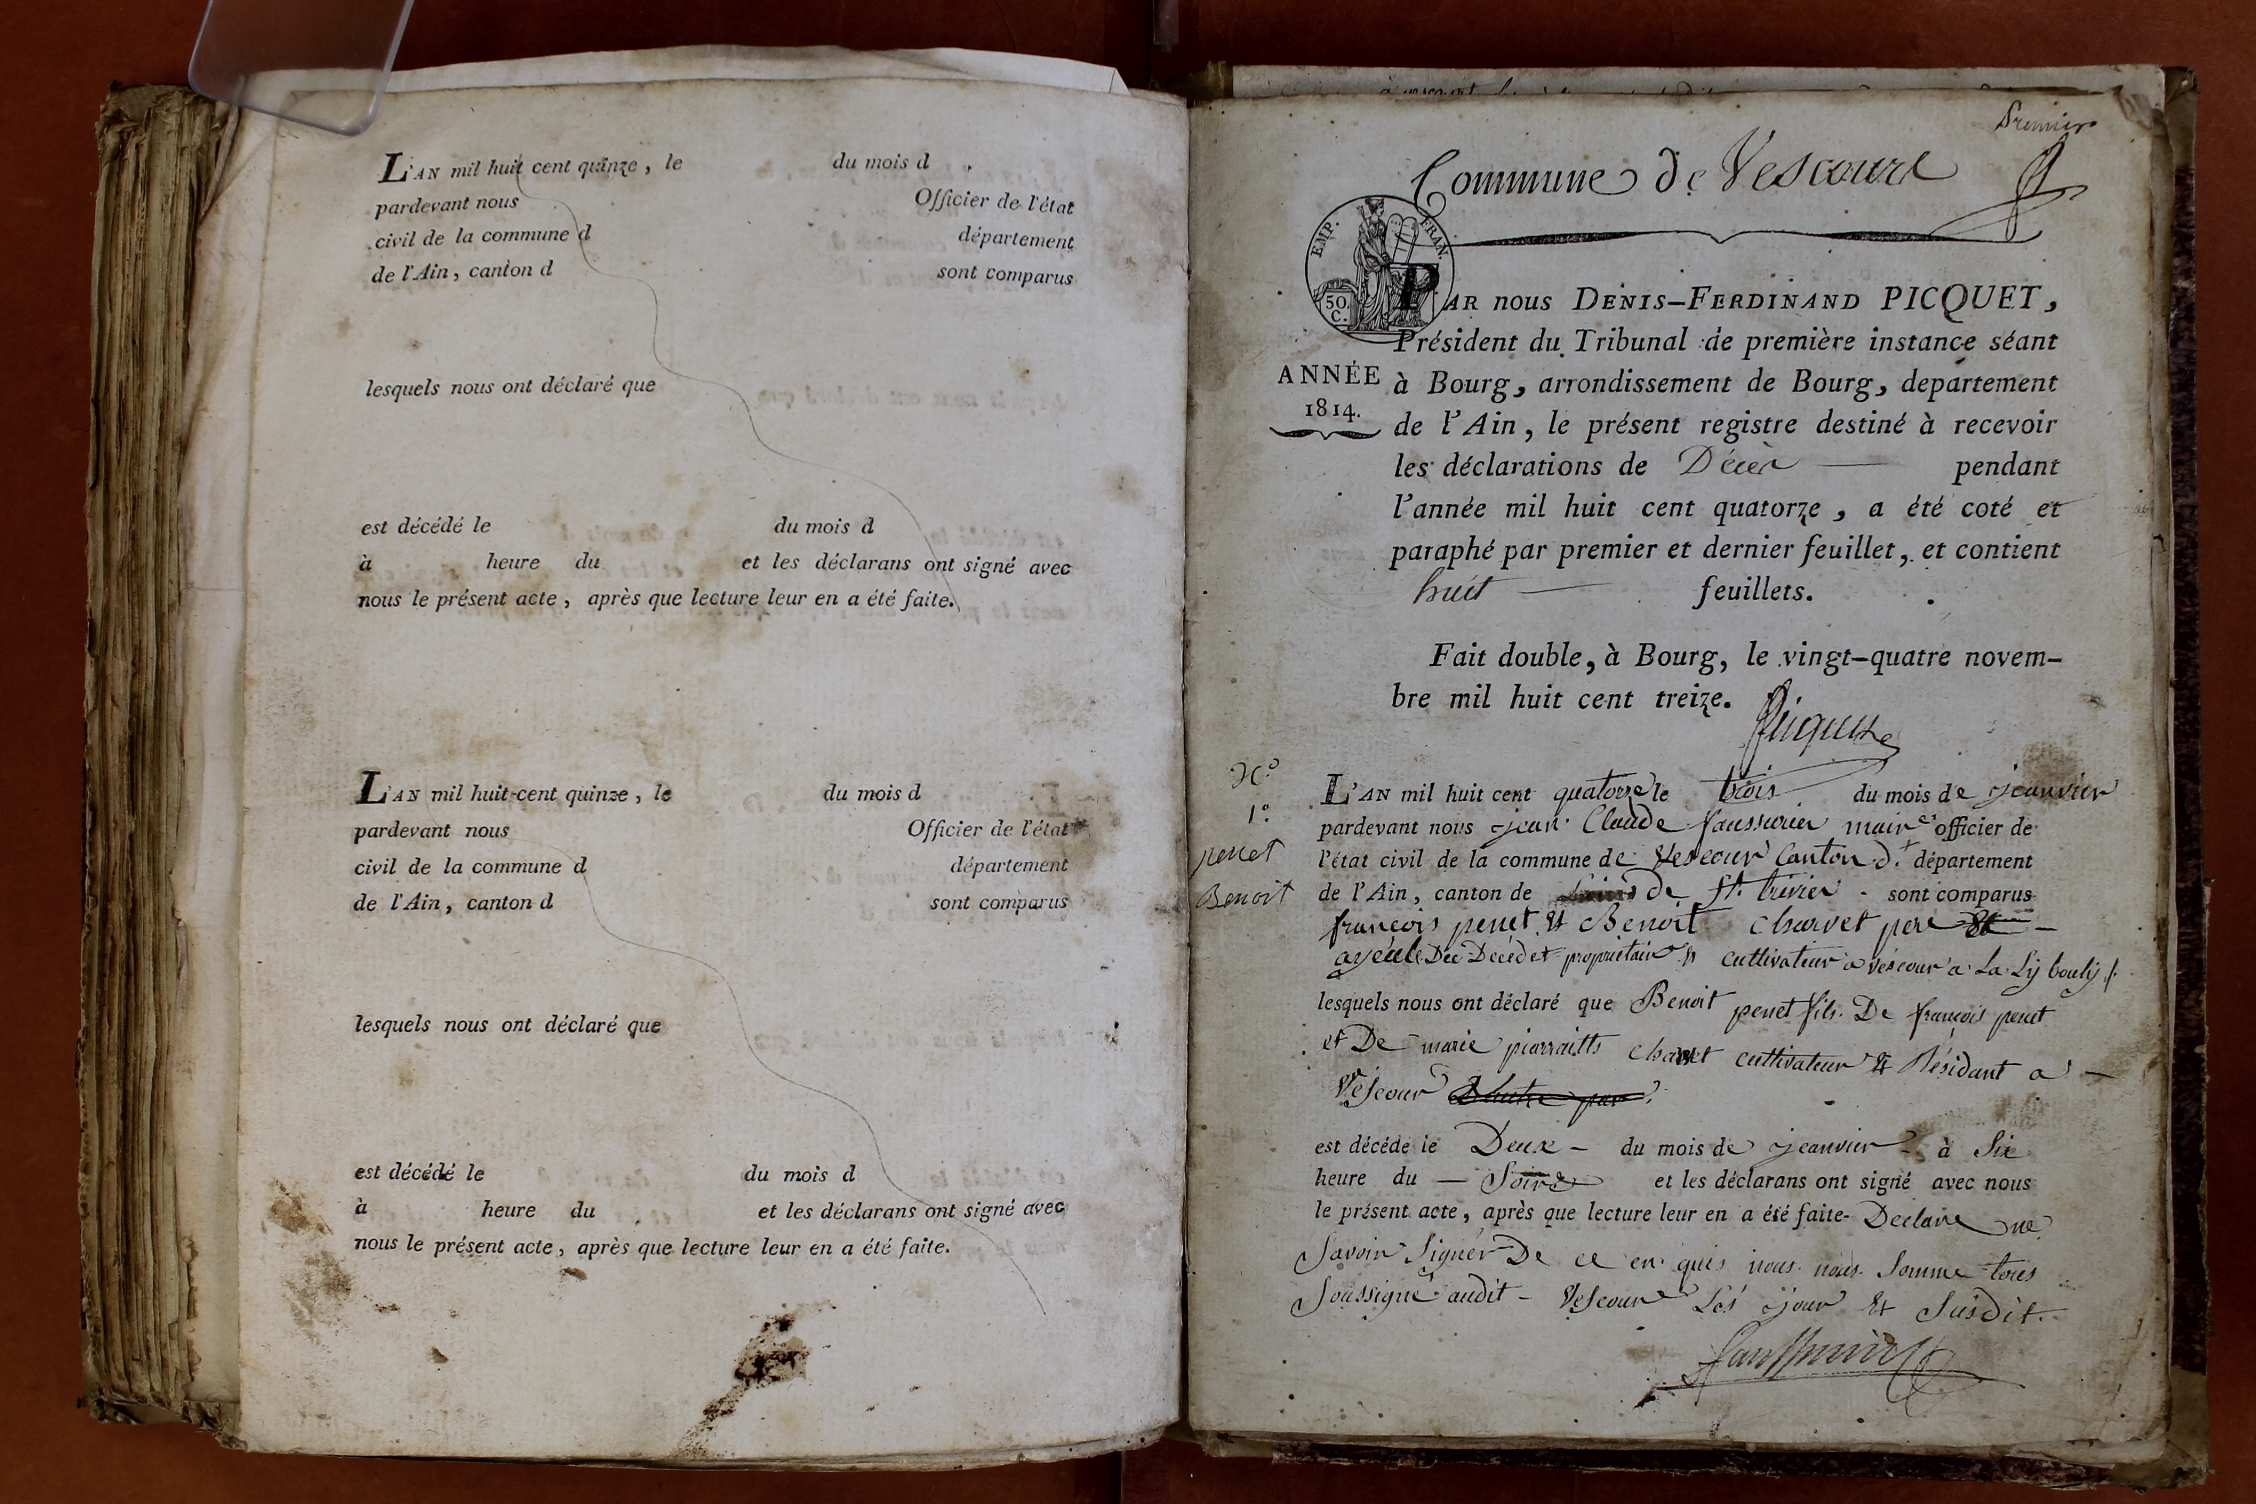 L'AN mil huit cent quinze, le du mois d
pardevant nous Officier de l'état
civil de la commune d département
de l'Ain, canton d sont comparus
lesquels nous ont déclaré que
est décédé le du mois d
à heure du et les déclarans ont signé avec
nous le présent acte, après que lecture leur en a été faite.
L'AN mil huit-cent quinze, le du mois d
pardevant nous Officier de l'état
civil de la commune d département
de l'Ain, canton d sont comparus
lesquels nous ont déclaré que
est décédé le du mois d
à heure du et les déclarans ont signé avec
nous le présent acte, après que lecture leur en a été faite.
Premier
Commune de Vescourt
EMP. FRAN.
50. C.
PAR nous DENIS-FERDINAND PICQUET,
Président du Tribunal de première instance séant
à Bourg, arrondissement de Bourg, departement
de l'Ain, le présent registre destiné à recevoir
les déclarations de Décès pendant
l'année mil huit cent quatorze, a été coté et
paraphé par premier et dernier feuillet, et contient
huit feuillets.
ANNÉE
1814.
Fait double, à Bourg, le vingt-quatre novem-
bre mil huit cent treize.
Picquet
N.º
1.º
penet
Benoit
L'AN mil huit cent quatorze le trois du mois de jeanvier
pardevant nous jean Claude maire officier de
l'état civil de la commune de Vescour Canton d. département
de l'Ain, canton de de St. trivier sont comparus
françois penet & Benoit charvet pere &
ayeule Du Decedet propriétair & cultivateur a vescour a La
lesquels nous ont déclaré que Benoit penet fils De françois penet
et De marie cultivateur & Résidant a
Vescour
est décédé le Deux du mois de jeanvier à Six
heure du Soire et les déclarans ont signé avec nous
le présent acte, après que lecture leur en a été faite. Declare ne
Savoir Signér De ce en quis nous nous Somme tous
Soussigné audit Vescour Les jour & Susdit.